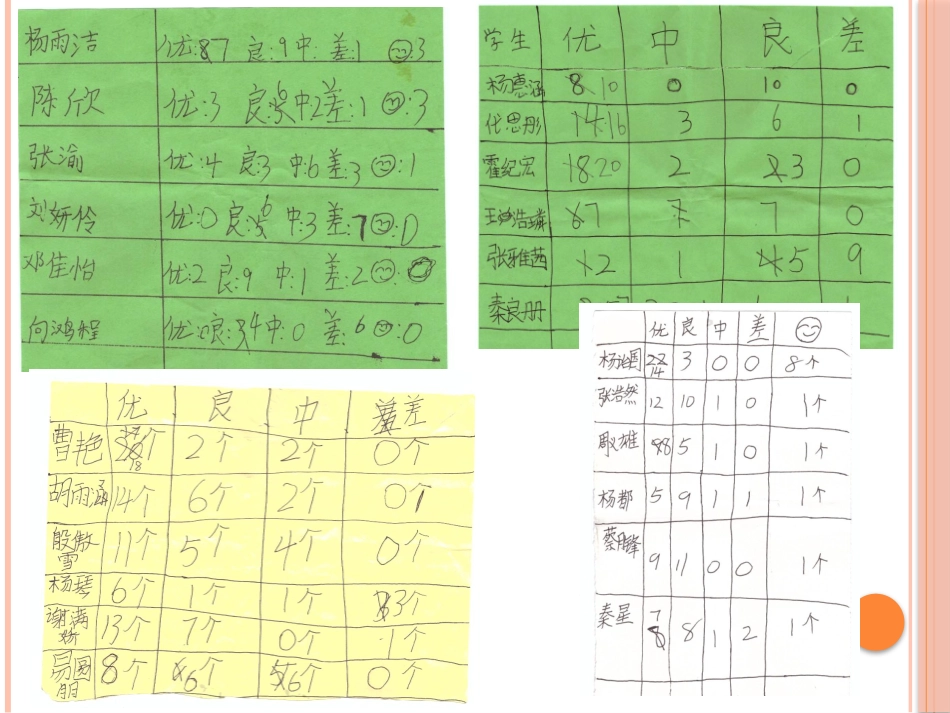 杨雨洁 优:7 良:9 中: 差:1 ☺:3
陈欣 优:3 良:6 中:2 差:1 ☺:3
张渝 优:4 良:3 中:6 差:3 ☺:1
刘妍伶 优:0 良:6 中:3 差:7 ☺:0
邓佳怡 优:2 良:9 中:1 差:2 ☺:
向鸿程 优:0 良:4 中:0 差:6 ☺:0
学生 优 中 良 差
杨惠涵 10 0 10 0
代思彤 16 3 6 1
霍纪宏 20 2 3 0
王浩璘 7 7 0
张雅茜 2 1 5 9
秦良册
优 良 中 差
曹艳 18个 2个 2个 0个
胡雨涵 14个 6个 2个 0个
殷傲雪 11个 5个 4个 0个
杨琴 6个 1个 1个 3个
谢满娇 13个 7个 0个 1个
易圆 8个 6个 6个 0个
优 良 中 差 ☺
14 3 0 0 8个
张浩然 12 10 1 0 1个
雄 8 5 1 0 1个
杨都 5 9 1 1 1个
9 11 0 0 1个
秦星 7 8 1 2 1个